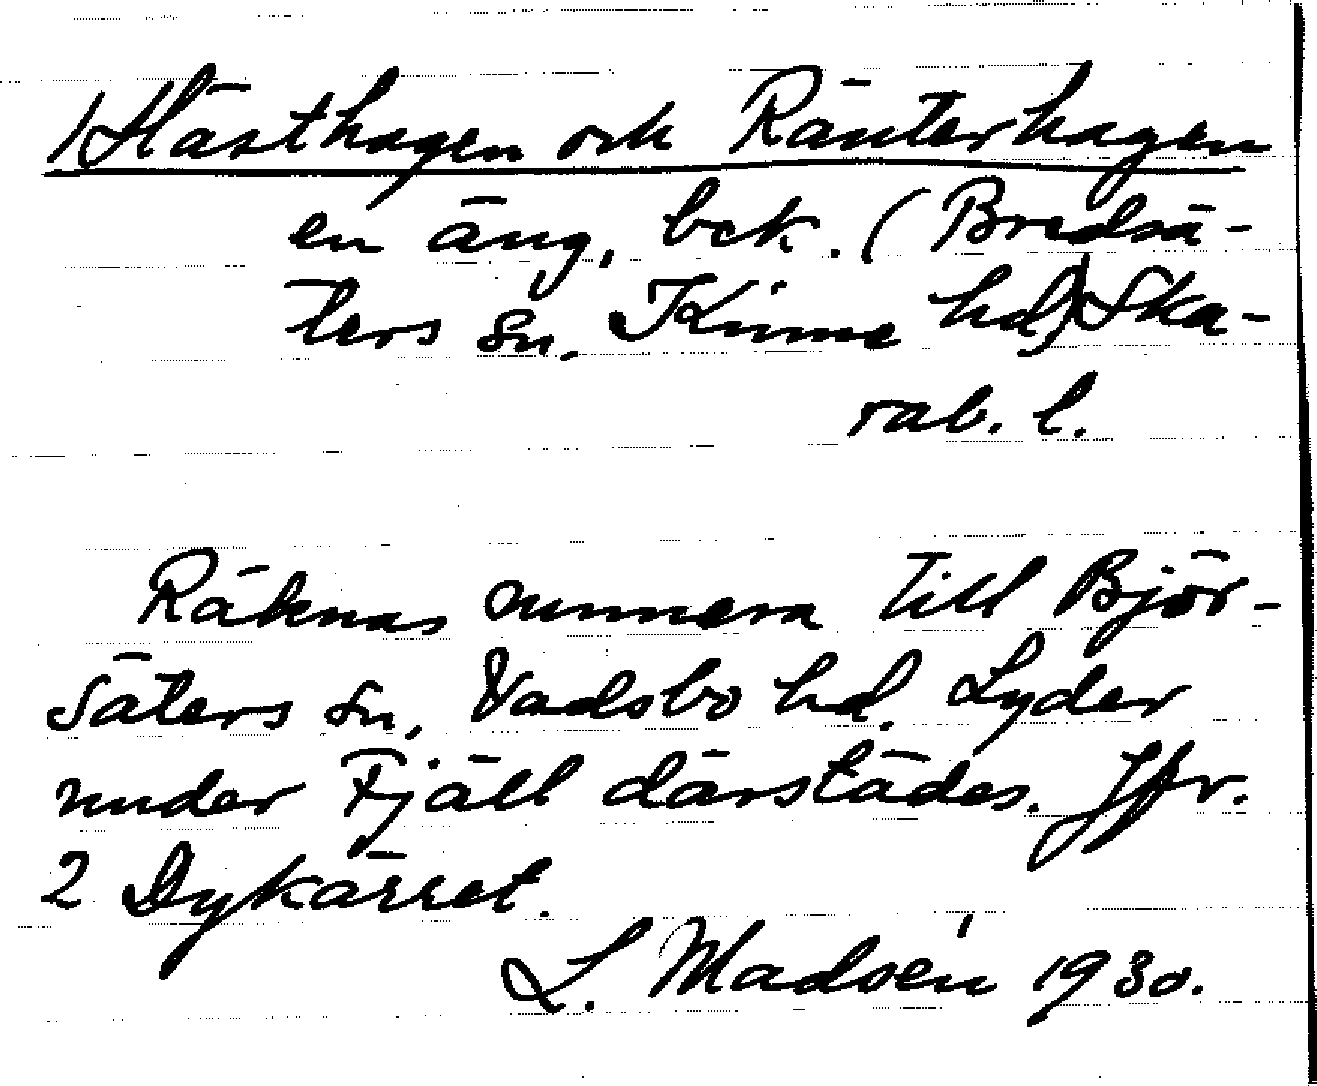 1 Hästhagen och Ränterhagen
en äng, bek. (Bredsä-
ters sn. Kinne hd) Ska-
rab. l.
Räknas numera till Björ-
säters sn, Vadsbo hd. Lyder
under Fjäll därstädes. Jfr.
2 Dykärret.
L. Madsén 1930.